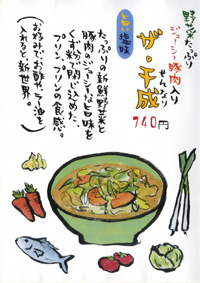 野菜たっぷり
ジューシー豚肉入り
ザ・千成
せんなり
740円
旨い塩味
たっぷりの新鮮野菜と
豚肉のジューシーな旨味を
くず粉で閉じ込めた、
プリン、プリンの食感。
(お好みでお酢やラー油を
入れると新世界。)